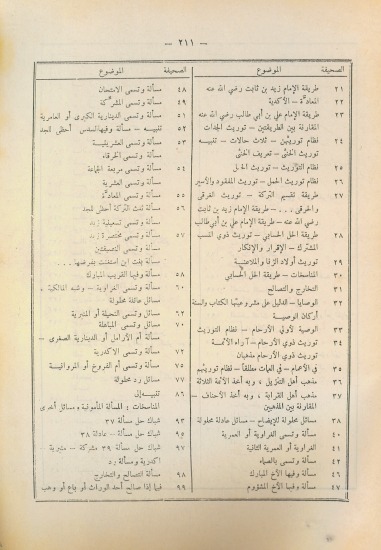 — ٢١١ —
الصحيفة الموضوع
٢١ طريقة الإمام زيد بن ثابت رضي الله عنه
٢٢ المعادَّة – الأكدرية
٢٣ طريقة الإمام علي بن أبي طالب رضي الله عنه
المقارنة بين الطريقتين – توريث الجدات
٢٤ نظام توريثهن – ثلاث حالات –
توريث الخنثى – تعريف الخنثى
٢٥ نظام التوريث – توريث الحمل
٢٦ نظام توريث الحمل – توريث المفقود والأسير
٢٧ طريقة تقسيم التركة – توريث الغرقى
والحرقى . . . – طريقة الإمام زيد بن ثابت
– طريقة الإمام علي بن أبي طالب
٢٨ طريقة الحل الحسابي – توريث ذوي النسب
المشترك – الإقرار والإنكار
٢٩ توريث أولاد الزنا والملاعنة
٣٠ المناسخات – طريقة الحل الحسابي
٣١ التخارج والتصالح
٣٢ الوصايا – الدليل على مشروعيتها الكتاب والسنة
أركان الوصية
٣٣ الوصية لأولي الأرحام – نظام التوريث
٣٤ توريث ذوي الأرحام – آراء الأئمة
توريث ذوي الأرحام مذهبان
٣٥ في الأعمام – في العمات مطلقاً – نظام توريثهم
٣٦ مذهب أهل التنزيل ، وبه أخذ الأئمة الثلاثة
٣٧ مذهب أهل القرابة ، وبه أخذ الأحناف –
المقارنة بين المذهبين
٣٨ مسائل محلولة للإيضاح – مسائل عادلة محلولة
٤٠ مسألة وتسمى الغراوية أو العمرية
٤١ الغراوية أو العمرية الثانية
٤٢ مسألة وتسمى بالصماء
٤٦ مسألة وفيها الأخ المبارك
٤٧ مسألة وفيها الأخ المشؤوم
الصحيفة الموضوع
٤٨ مسألة وتسمى الامتحان
٤٩ مسألة وتسمى المشرَّكة
٥١ مسألة وتسمى الدينارية الكبرى أو العامرية
٥٢ تنبيه – مسألة وفيها السدس أحظى للجد
٥٣ مسألة وتسمى العشرينية
مسألة وتسمى الخرقاء
٥٤ مسألة وتسمى مربعة الجماعة
مسألة وتسمى العشرية
٥٥ مسألة وتسمى المعادَّة
٥٦ مسألة ثلث التركة أحظى للجد
مسألة وتسمى تسعينية زيد
٥٧ مسألة وتسمى مختصرة زيد
مسألة وتسمى النصيفتين
مسألة بنت ابن استغنت بفرضها . . .
٥٨ مسألة وفيها القريب المبارك
٦٠ مسألة وتسمى الغراوية – وشبه المالكية ،
مسائل عائلة محلولة
٦٢ مسائل وتسمى البخيلة أو المنبرية
٧٠ مسألة وتسمى المباهلة
مسألة أم الأرامل أو الدينارية الصغرى –
٧٢ مسألة وتسمى الأكدرية
٧٥ مسألة وتسمى أم الفروخ أو المروانية
٧٧ مسائل رد محلولة
٨٦
المناسخات : المسألة المأمونية ومسائل أخرى
٩٣ شباك حل مسألة ٣٧
٩٥ شباك حل مسألة – عادلة ٣٨
٩٧ شباك حل مسألة ٣٩ مشركة – منبرية
اكدرية ومسألة رد
٩٨ مسألة التصالح والتخارج
٩٩ فيما إذا صالح أحد الوراث أو باع أو وهب